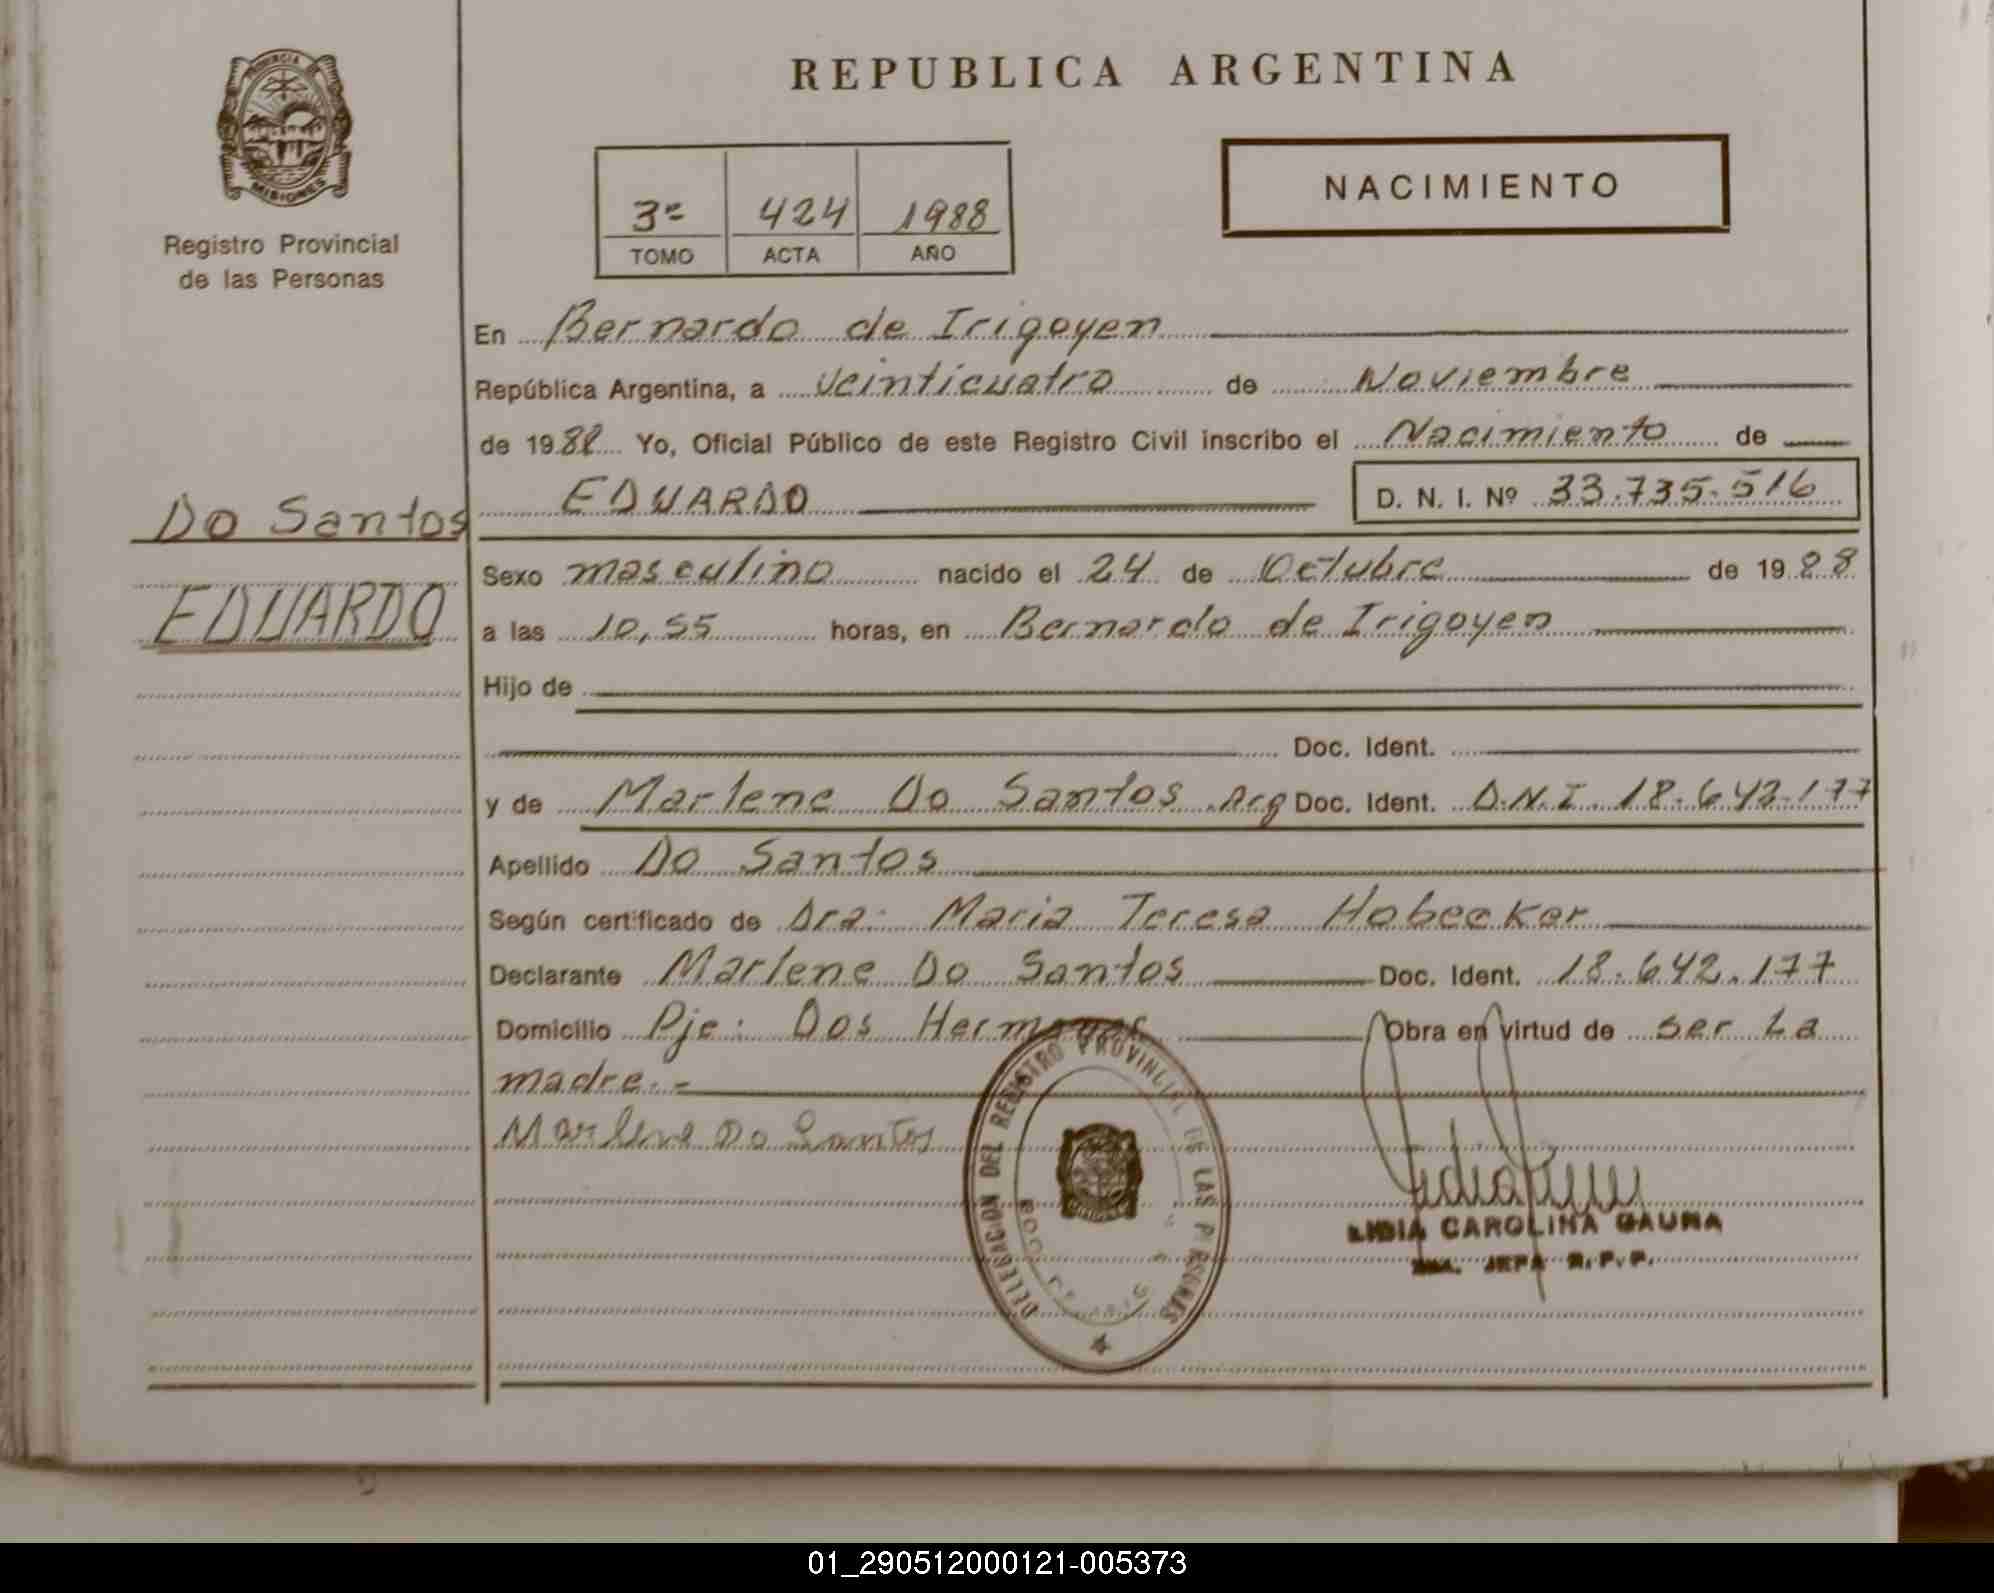 REPUBLICA ARGENTINA
PROVINCIA DE
MISIONES
Registro Provincial
de las Personas
3º 424 1988
TOMO ACTA AÑO
NACIMIENTO
En Bernardo de Irigoyen
República Argentina, a Veinticuatro de Noviembre
de 1988 Yo, Oficial Público de este Registro Civil inscribo el Nacimiento de
Do Santos
EDUARDO
EDUARDO D. N. I. Nº 33.735.516
Sexo masculino nacido el 24 de Octubre de 1988
a las 10,55 horas, en Bernardo de Irigoyen
Hijo de
Doc. Ident.
y de Marlene Do Santos Arg Doc. Ident. D.N.I. 18.642.177
Apellido Do Santos
Según certificado de Dra: Maria Teresa Hobecker
Declarante Marlene Do Santos Doc. Ident. 18.642.177
Domicilio Pje: Dos Hermanas Obra en virtud de ser La
madre.-
Marlene Do Santos
DELEGACION DEL REGISTRO PROVINCIAL DE LAS PERSONAS
LIDIA CAROLINA GAUNA
JEFA R.P.P.
01_290512000121-005373